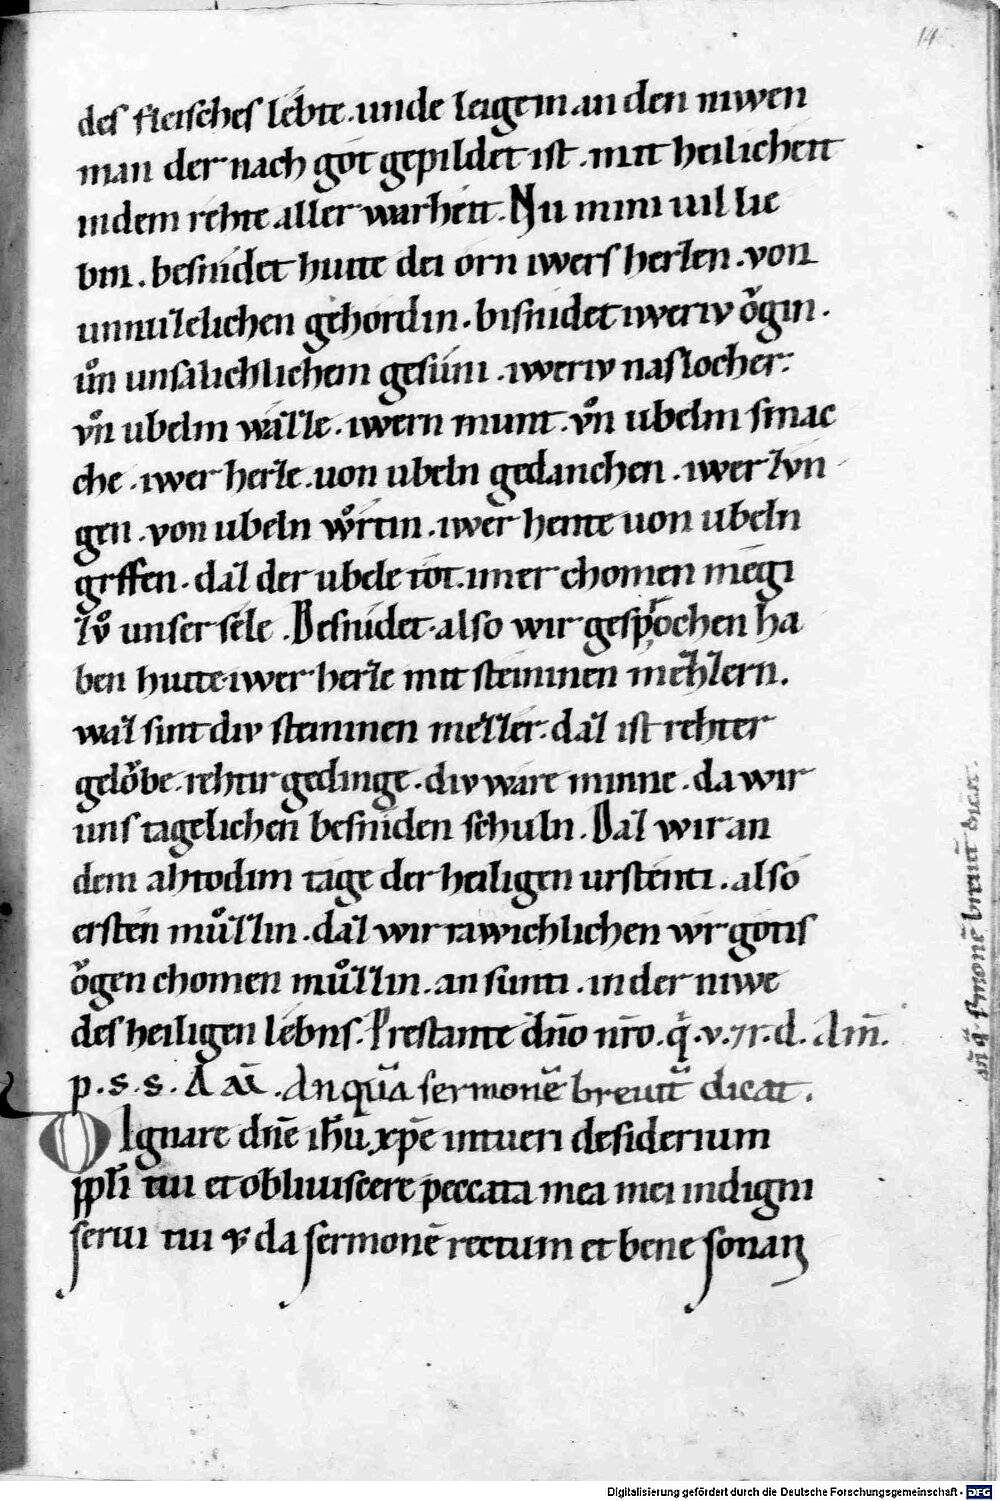 14
des fleisches lebte. unde leigein. an den niwen
man der nach got gepildet ist. mit heilicheit
indem rehte aller warheit. Nu mini uil lie
bin. besnidet hiute dei orn iwers herzen. von
unnuzelichen gehordin. bisnidet iweriv ǒgin.
uͦn unsalichlichem gesiuni. iweriv naslocher.
vͦn ubelm wazze. iwern munt. vͦn ubelm smac
che. iwer herze. uon ubeln gedanchen. iwer zvn
gen. von ubeln wͦrtin. iwer hente uon ubeln
griffen. daz der ubele tot. inner chomen megi
zvͦ unser sele. Besnidet. also wir gesprochen ha
ben hiute. iwer herze mit steininen mezzern.
waz sint div steininen mezzer. daz ist rehter
gelǒbe. rehtir gedinge. div ware minne. da wir
uns tagelichen besniden schuln. Daz wir an
dem ahtodim tage der heiligen urstenti. also
ersten muͦzzin. daz wir rawichlichen vvr gotis
ǒgen chomen muͦzzin. an sunti. in der niwe
des heiligen lebns. Prestante dn̄o nr̄o. q̄. v. ⁊ r. d. Am̄.
p. s. s. A ai. Anqua sermonē breuit dicat.
DIgnare dn̄e ih̄u xp̄e intueri desiderium
ppl̄i tui et obliuiscere peccata mea mei indigni
serui tui & da sermonē rectum et bene sonan
anq̄ s̄monē breuit̄ dicat.
Digitalisierung gefördert durch die Deutsche Forschungsgemeinschaft - DFG